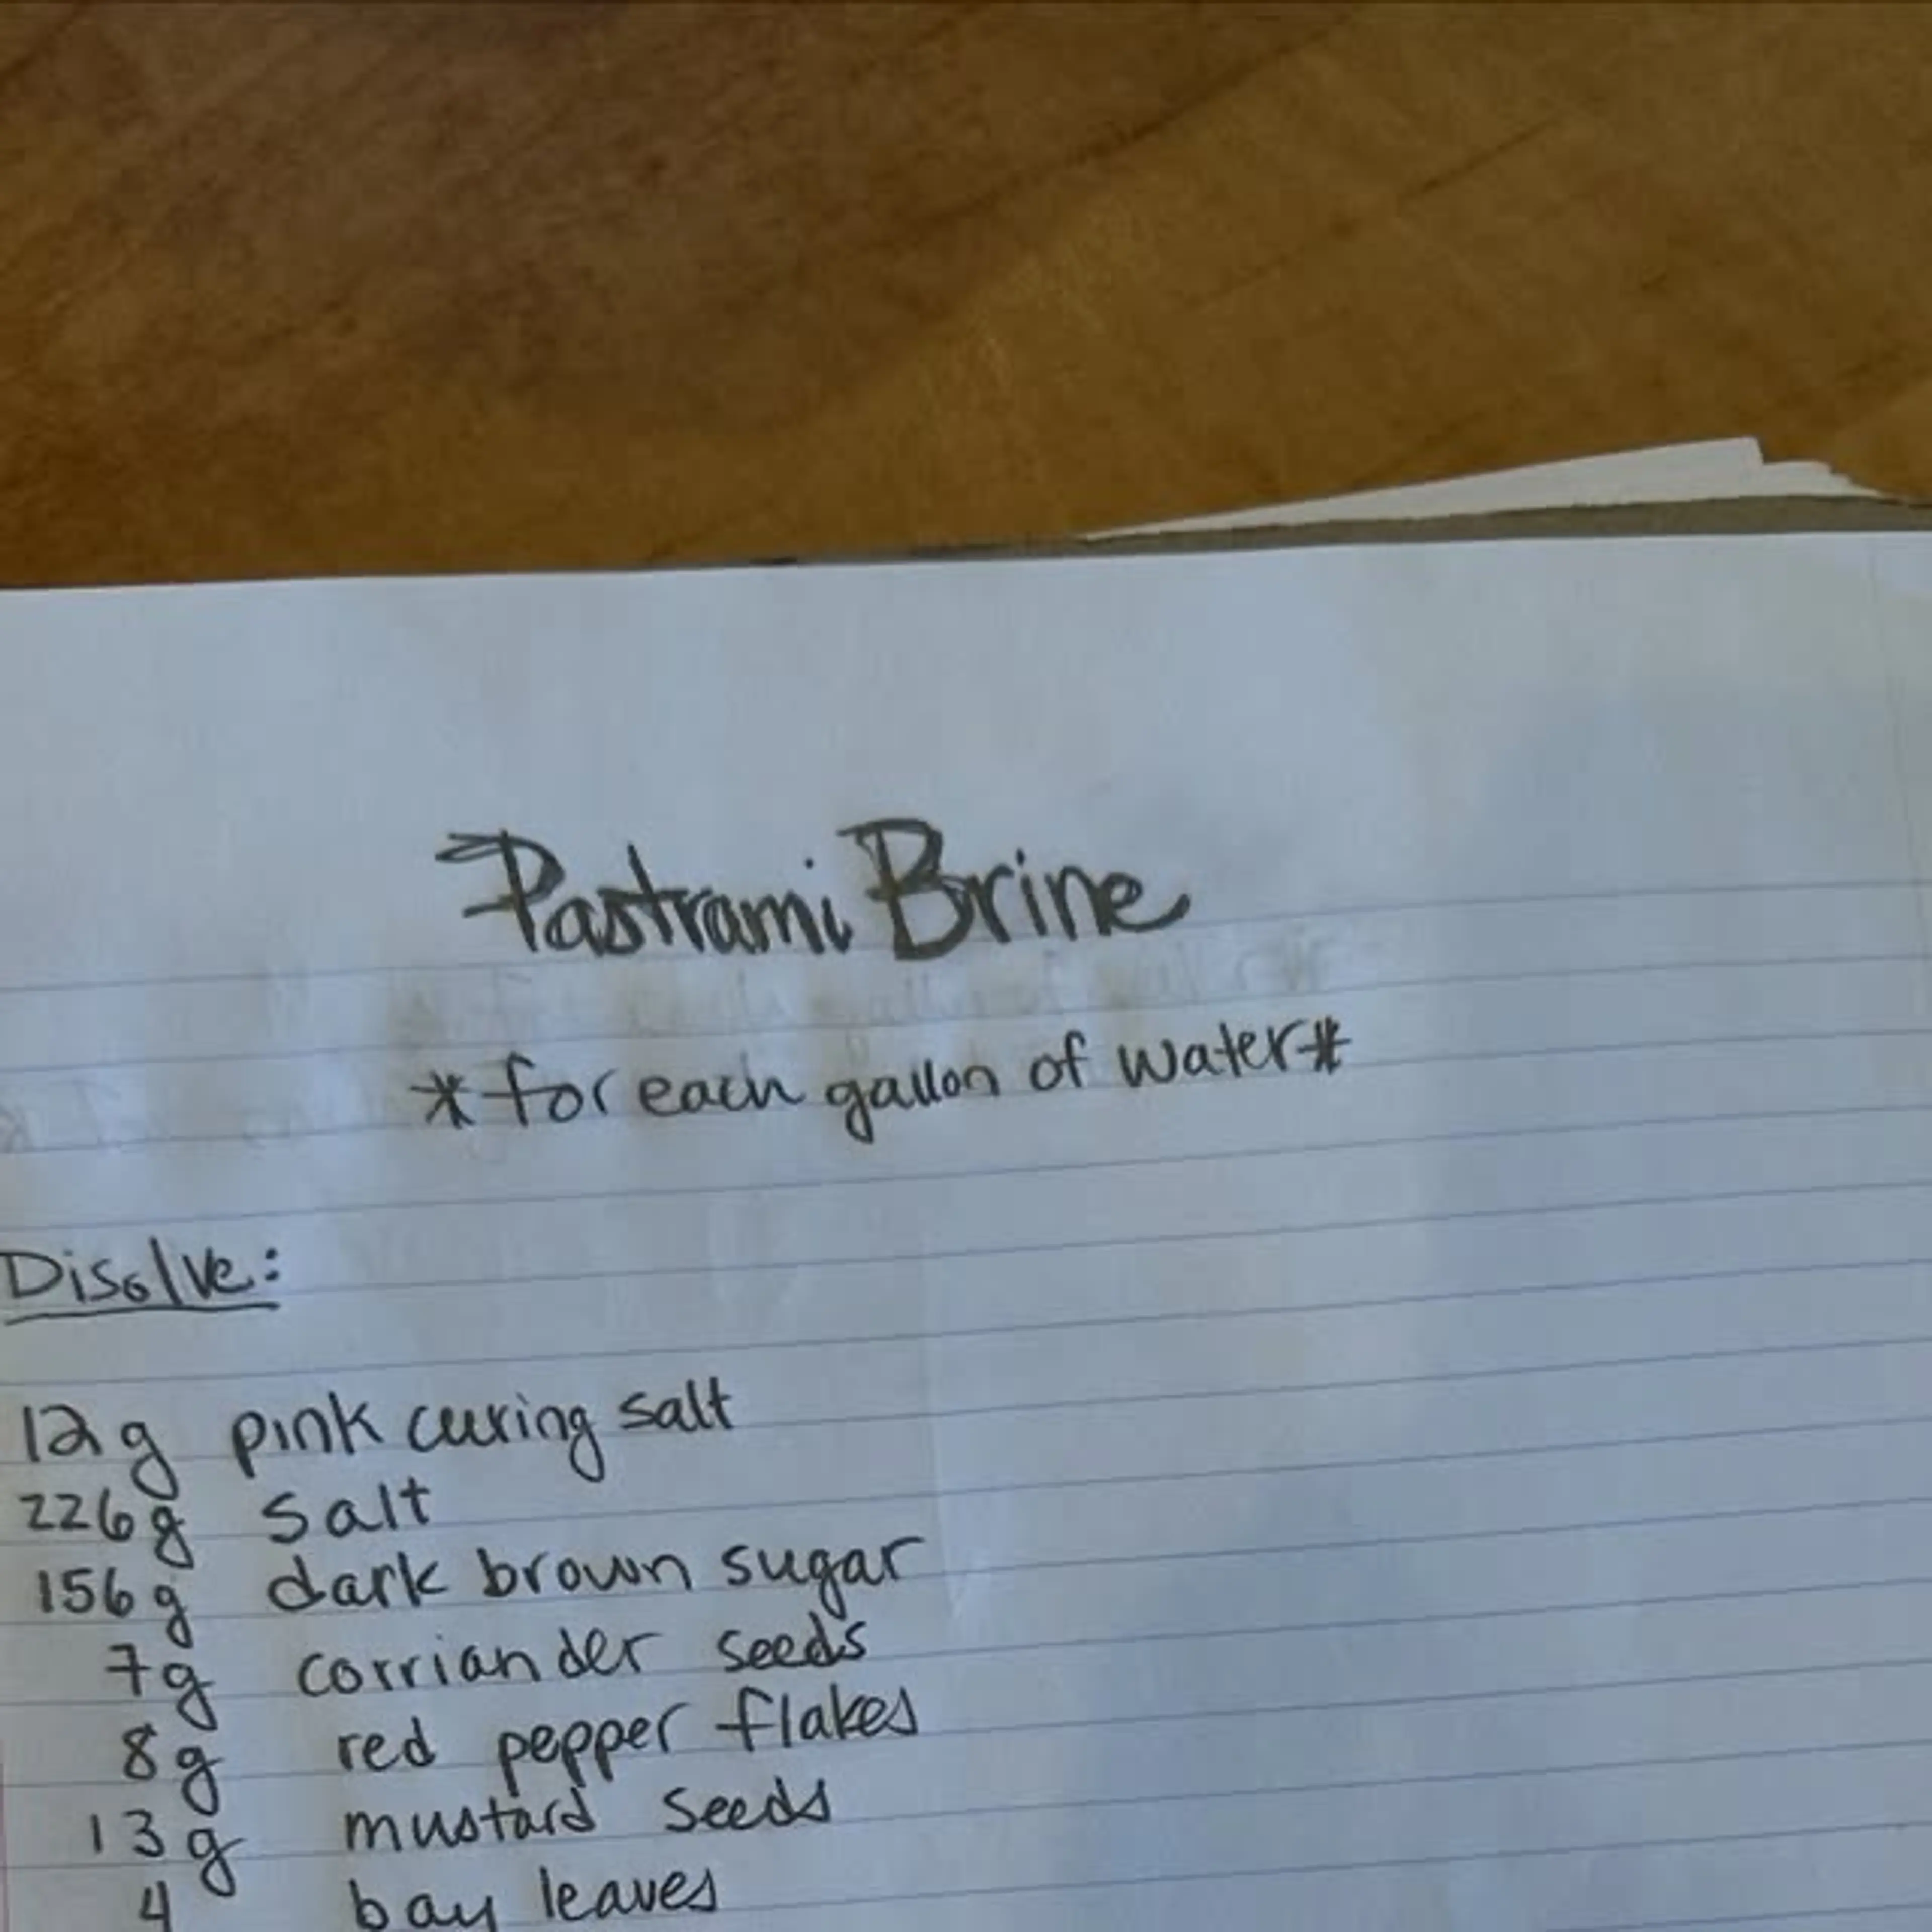 Pastrami Brine
*for each gallon of water*
Disolve:
12g pink curing salt
226g salt
156g dark brown sugar
7g corriander seeds
8g red pepper flakes
13g mustard seeds
4 bay leaves